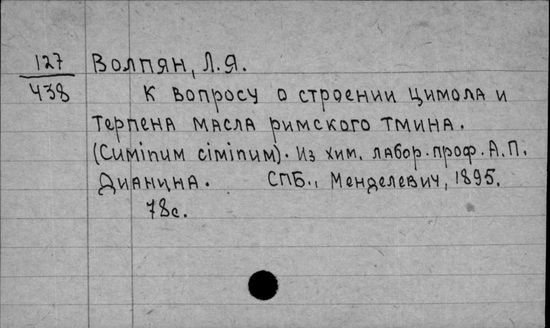 127 Волпян, Л.Я.
438 К вопросу о строении цимола и
терпена масла римского тмина.
(Cuminum ciminum). Из хим. лабор. проф. А.П.
Дианина. СПБ., Менделевич, 1895.
78с.